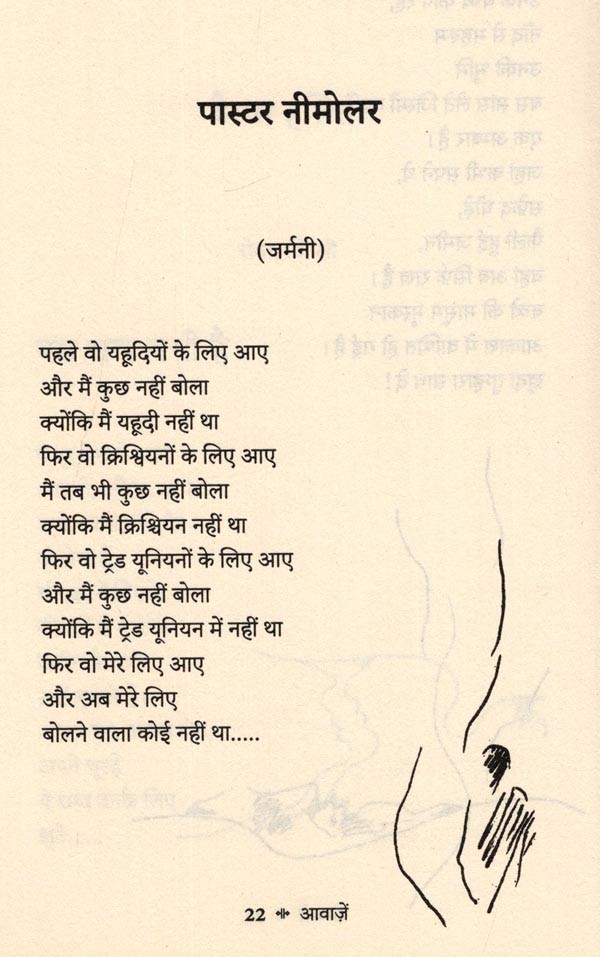 पास्टर नीमोलर
(जर्मनी)
पहले वो यहूदियों के लिए आए
और मैं कुछ नहीं बोला
क्योंकि मैं यहूदी नहीं था
फिर वो क्रिश्चियनों के लिए आए
मैं तब भी कुछ नहीं बोला
क्योंकि मैं क्रिश्चियन नहीं था
फिर वो ट्रेड यूनियनों के लिए आए
और मैं कुछ नहीं बोला
क्योंकि मैं ट्रेड यूनियन में नहीं था
फिर वो मेरे लिए आए
और अब मेरे लिए
बोलने वाला कोई नहीं था.....
22 आवाज़ें